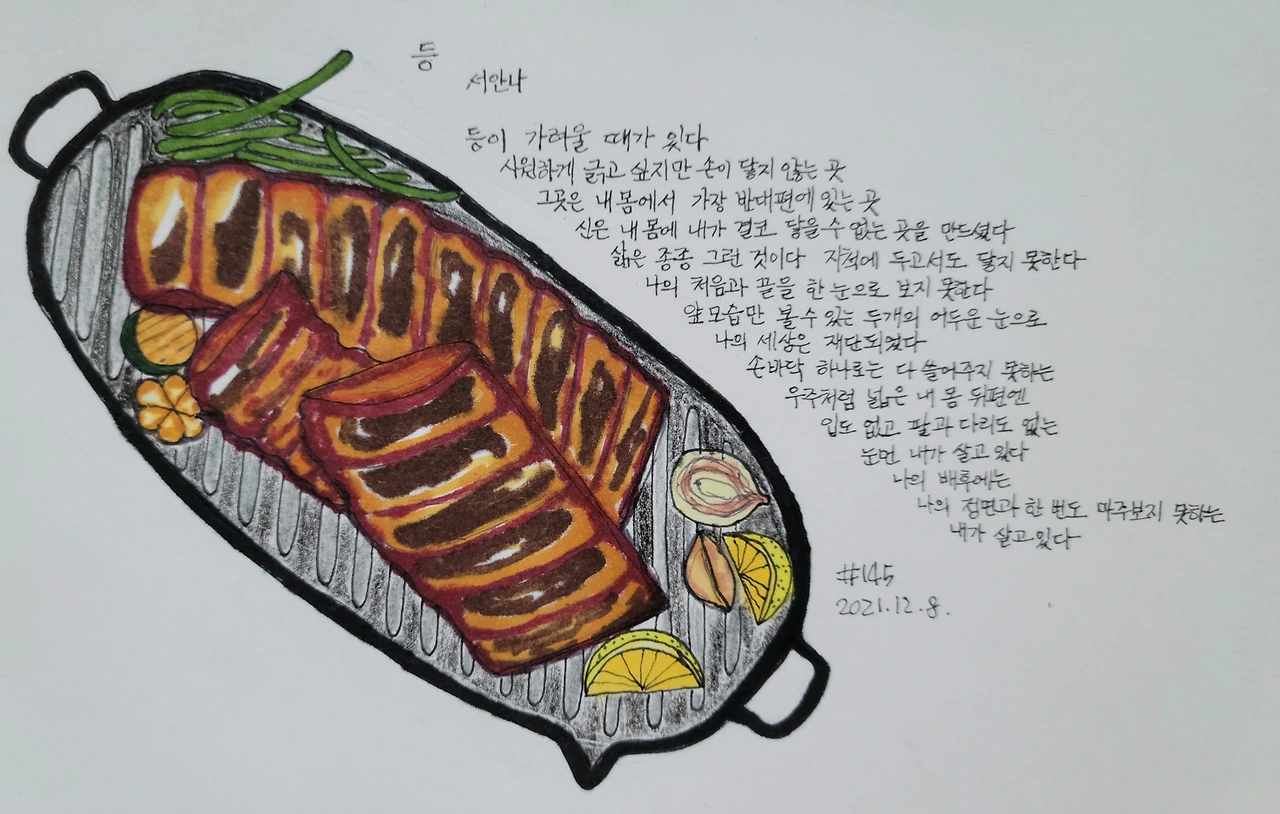 등
서안나
등이 가려울 때가 있다
시원하게 긁고 싶지만 손이 닿지 않는 곳
그곳은 내 몸에서 가장 반대편에 있는 곳
신은 내 몸에 내가 결코 닿을 수 없는 곳을 만드셨다
삶은 종종 그런 것이다 지척에 두고서도 닿지 못한다
나의 처음과 끝을 한 눈으로 보지 못한다
앞모습만 볼 수 있는 두개의 어두운 눈으로
나의 세상은 재단되었다
손바닥 하나로는 다 쓸어주지 못하는
우주처럼 넓은 내 몸 뒤편엔
입도 없고 팔과 다리도 없는
눈먼 내가 살고 있다
나의 배후에는
나의 정면과 한 번도 마주보지 못하는
내가 살고 있다
#145
2021.12.8.